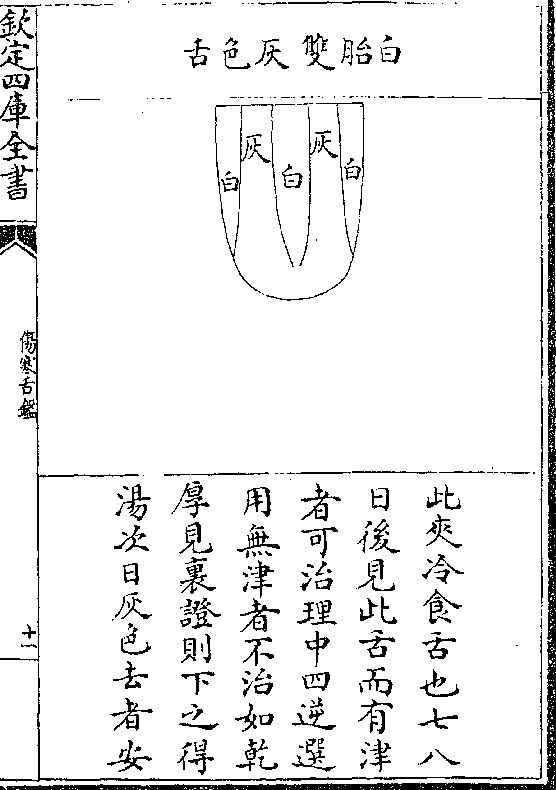 白胎雙灰色舌
白
灰
白
灰
白
此夾冷食舌也七八
日後見此舌而有津
者可治理中四逆選
用無津者不治如乾
厚見裏證則下之得
湯次日灰色去者安
欽定四庫全書
傷寒舌鑑
十一